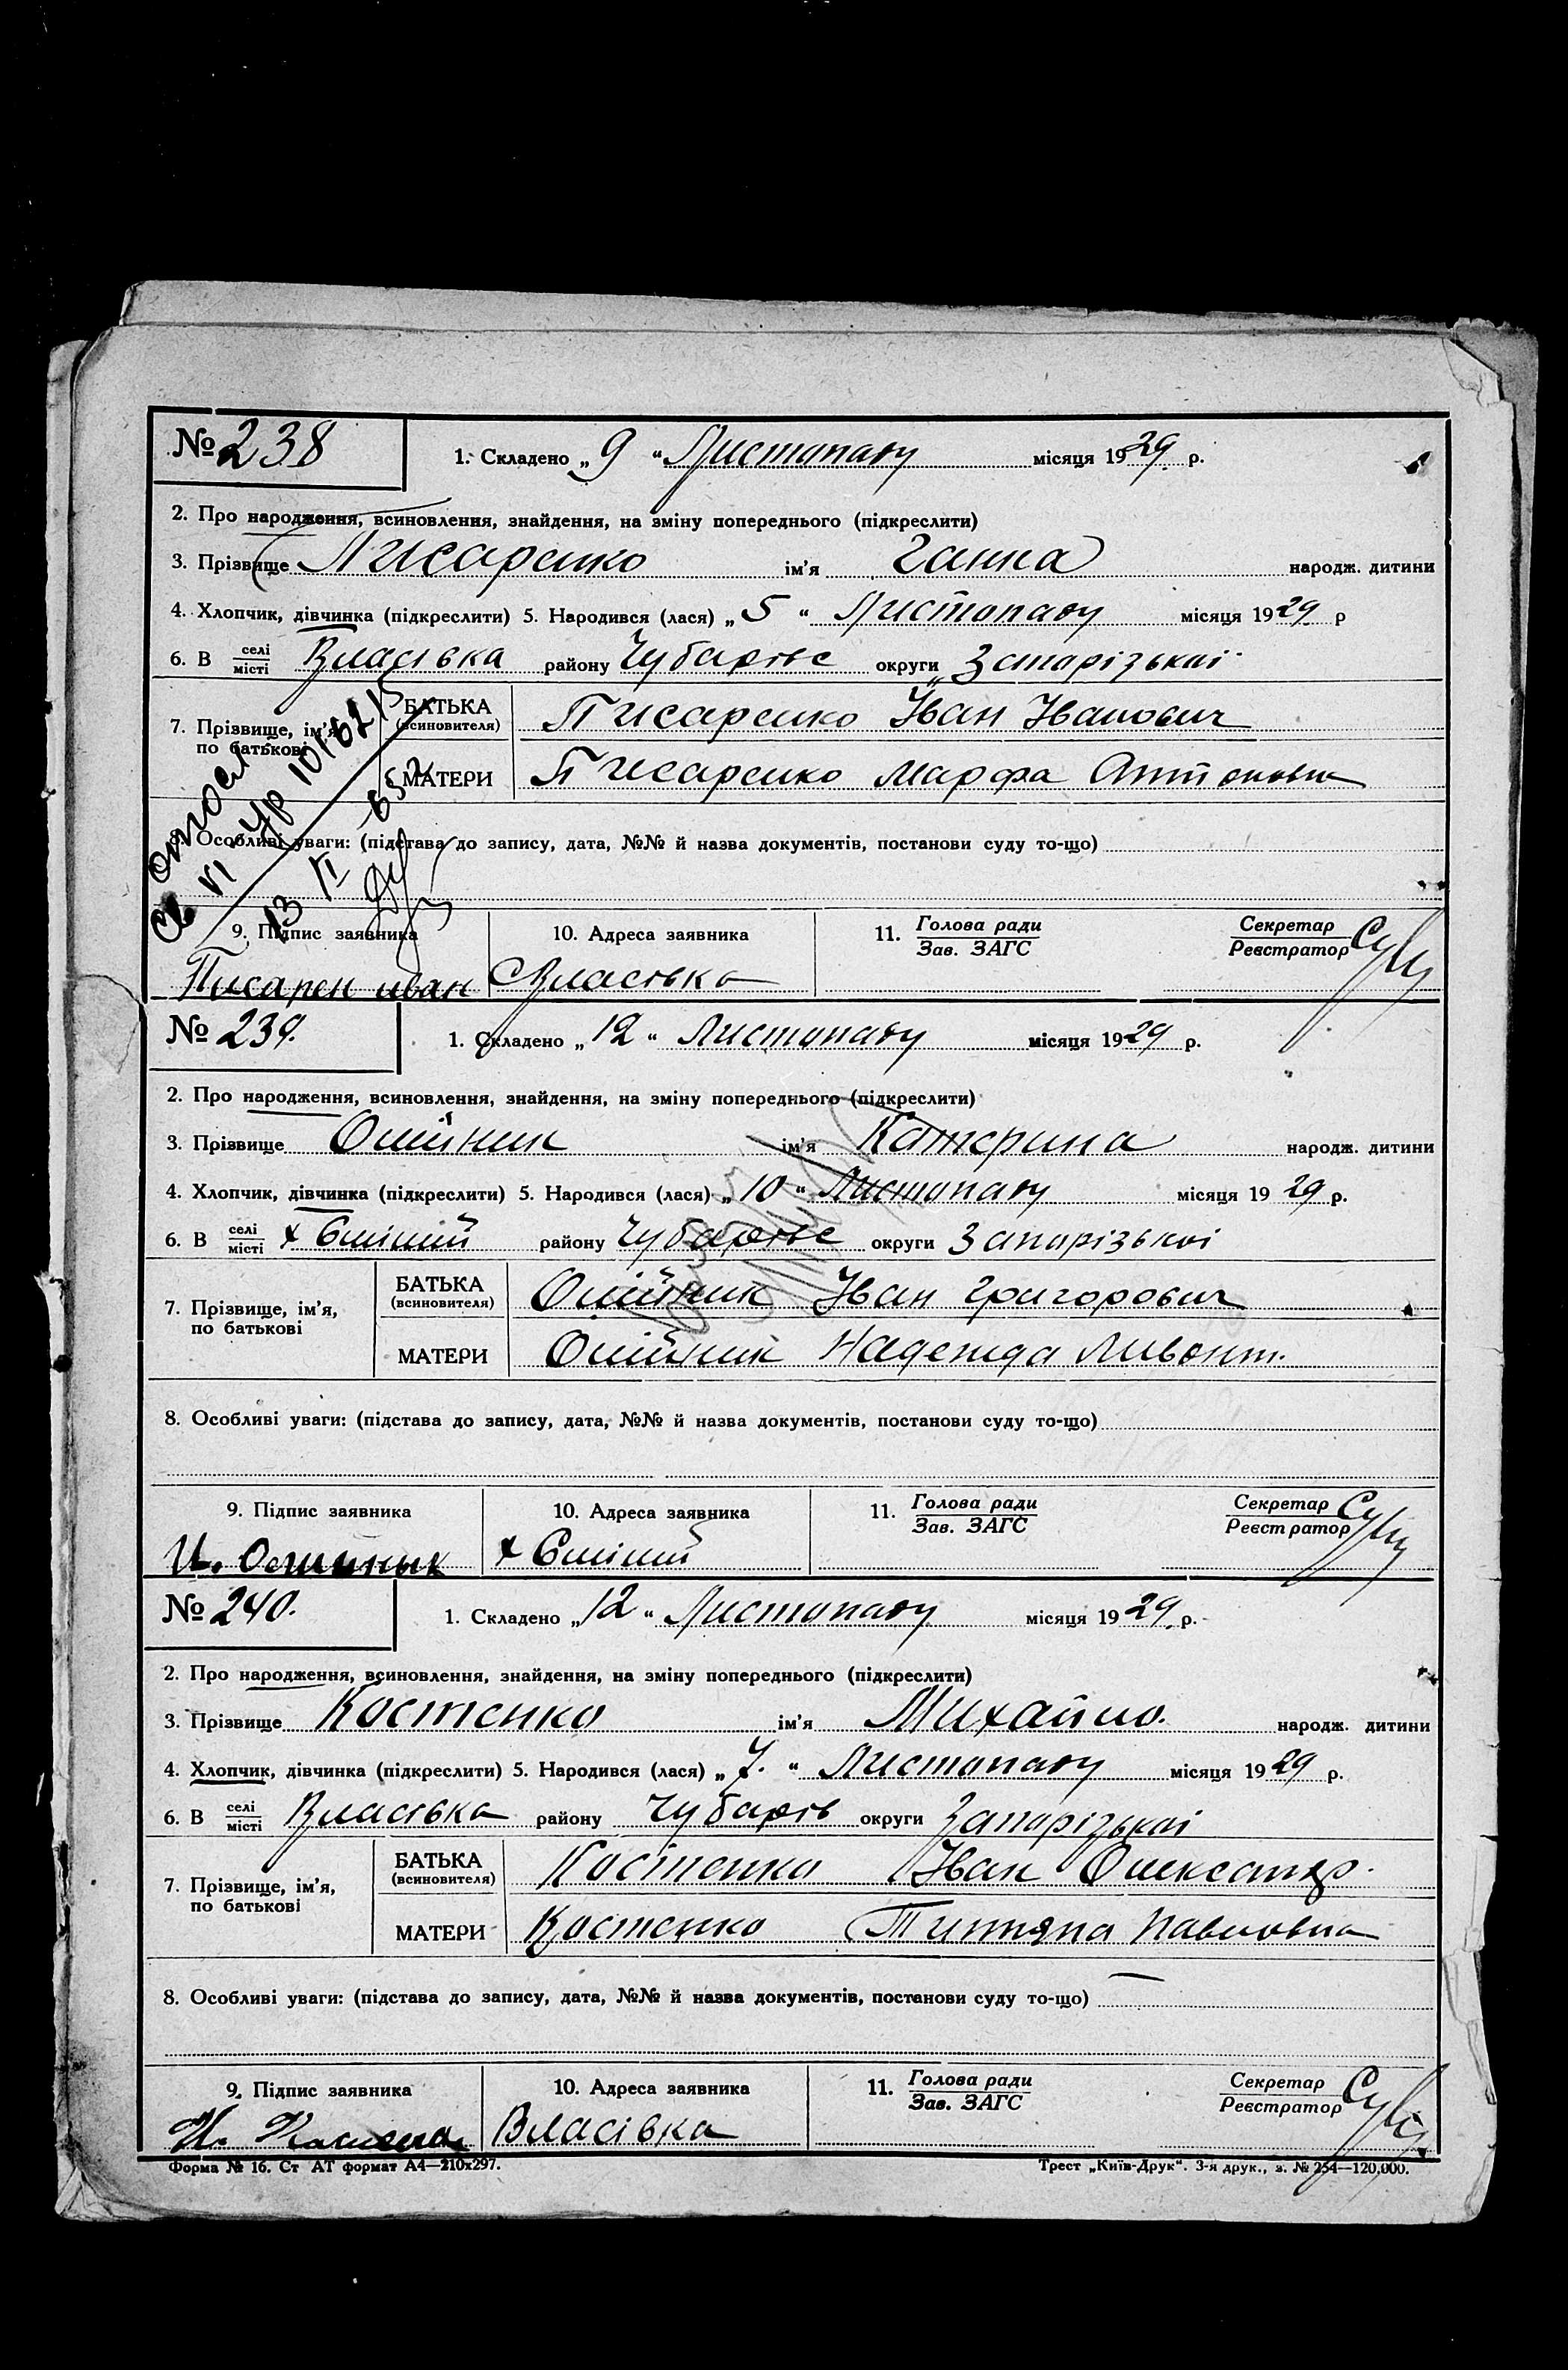 № 238 1. Складено „ 9 “ Листопаду місяця 1929 р.
2. Про народження, всиновлення, знайдення, на зміну попереднього (підкреслити)
3. Прізвище Писаренко ім'я Ганна народж. дитини
4. Хлопчик, дівчинка (підкреслити) 5. Народився (лася) „ 5 “ Листопаду місяця 1929 р
6. В селі/місті Власівка району Чубарівс округи Запорізької
7. Прізвище, ім'я, по батькові
БАТЬКА (всиновителя) Писаренко Іван Іванович
МАТЕРИ Писаренко Марфа Антоновна
8. Особливі уваги: (підстава до запису, дата, №№ й назва документів, постанови суду то-що)
9. Підпис заявника 10. Адреса заявника 11. Голова ради/Зав. ЗАГС Секретар/Реєстратор
Писарен иван Власівка
№ 239. 1. Складено „ 12 “ Листопаду місяця 1929 р.
2. Про народження, всиновлення, знайдення, на зміну попереднього (підкреслити)
3. Прізвище Олійник ім'я Катерина народж. дитини
4. Хлопчик, дівчинка (підкреслити) 5. Народився (лася) „ 10 “ Листопаду місяця 1929 р.
6. В селі/місті х району Чубарівс округи Запорізької
7. Прізвище, ім'я, по батькові
БАТЬКА (всиновителя) Олійник Іван Григорович
МАТЕРИ Олійник Надежда Ливонт.
8. Особливі уваги: (підстава до запису, дата, №№ й назва документів, постанови суду то-що)
9. Підпис заявника 10. Адреса заявника 11. Голова ради/Зав. ЗАГС Секретар/Реєстратор
И. х
№ 240. 1. Складено „ 12 “ Листопаду місяця 1929 р.
2. Про народження, всиновлення, знайдення, на зміну попереднього (підкреслити)
3. Прізвище Костенко ім'я Михайло. народж. дитини
4. Хлопчик, дівчинка (підкреслити) 5. Народився (лася) „ 7. “ Листопаду місяця 1929 р.
6. В селі/місті Власівка району Чубарів округи Запорізької
7. Прізвище, ім'я, по батькові
БАТЬКА (всиновителя) Костенко Іван Олександр.
МАТЕРИ Костенко Титяна Павловна
8. Особливі уваги: (підстава до запису, дата, №№ й назва документів, постанови суду то-що)
9. Підпис заявника 10. Адреса заявника 11. Голова ради/Зав. ЗАГС Секретар/Реєстратор
И. Власівка
Форма № 16. Ст АТ формат А4—210х297. Трест „Київ-Друк“. 3-я друк., з. № 254—120,000.